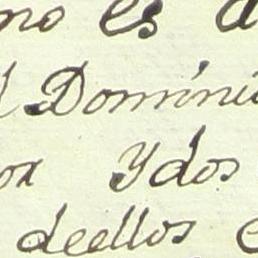 no es d
l Dominic
or Ydos
deellos e